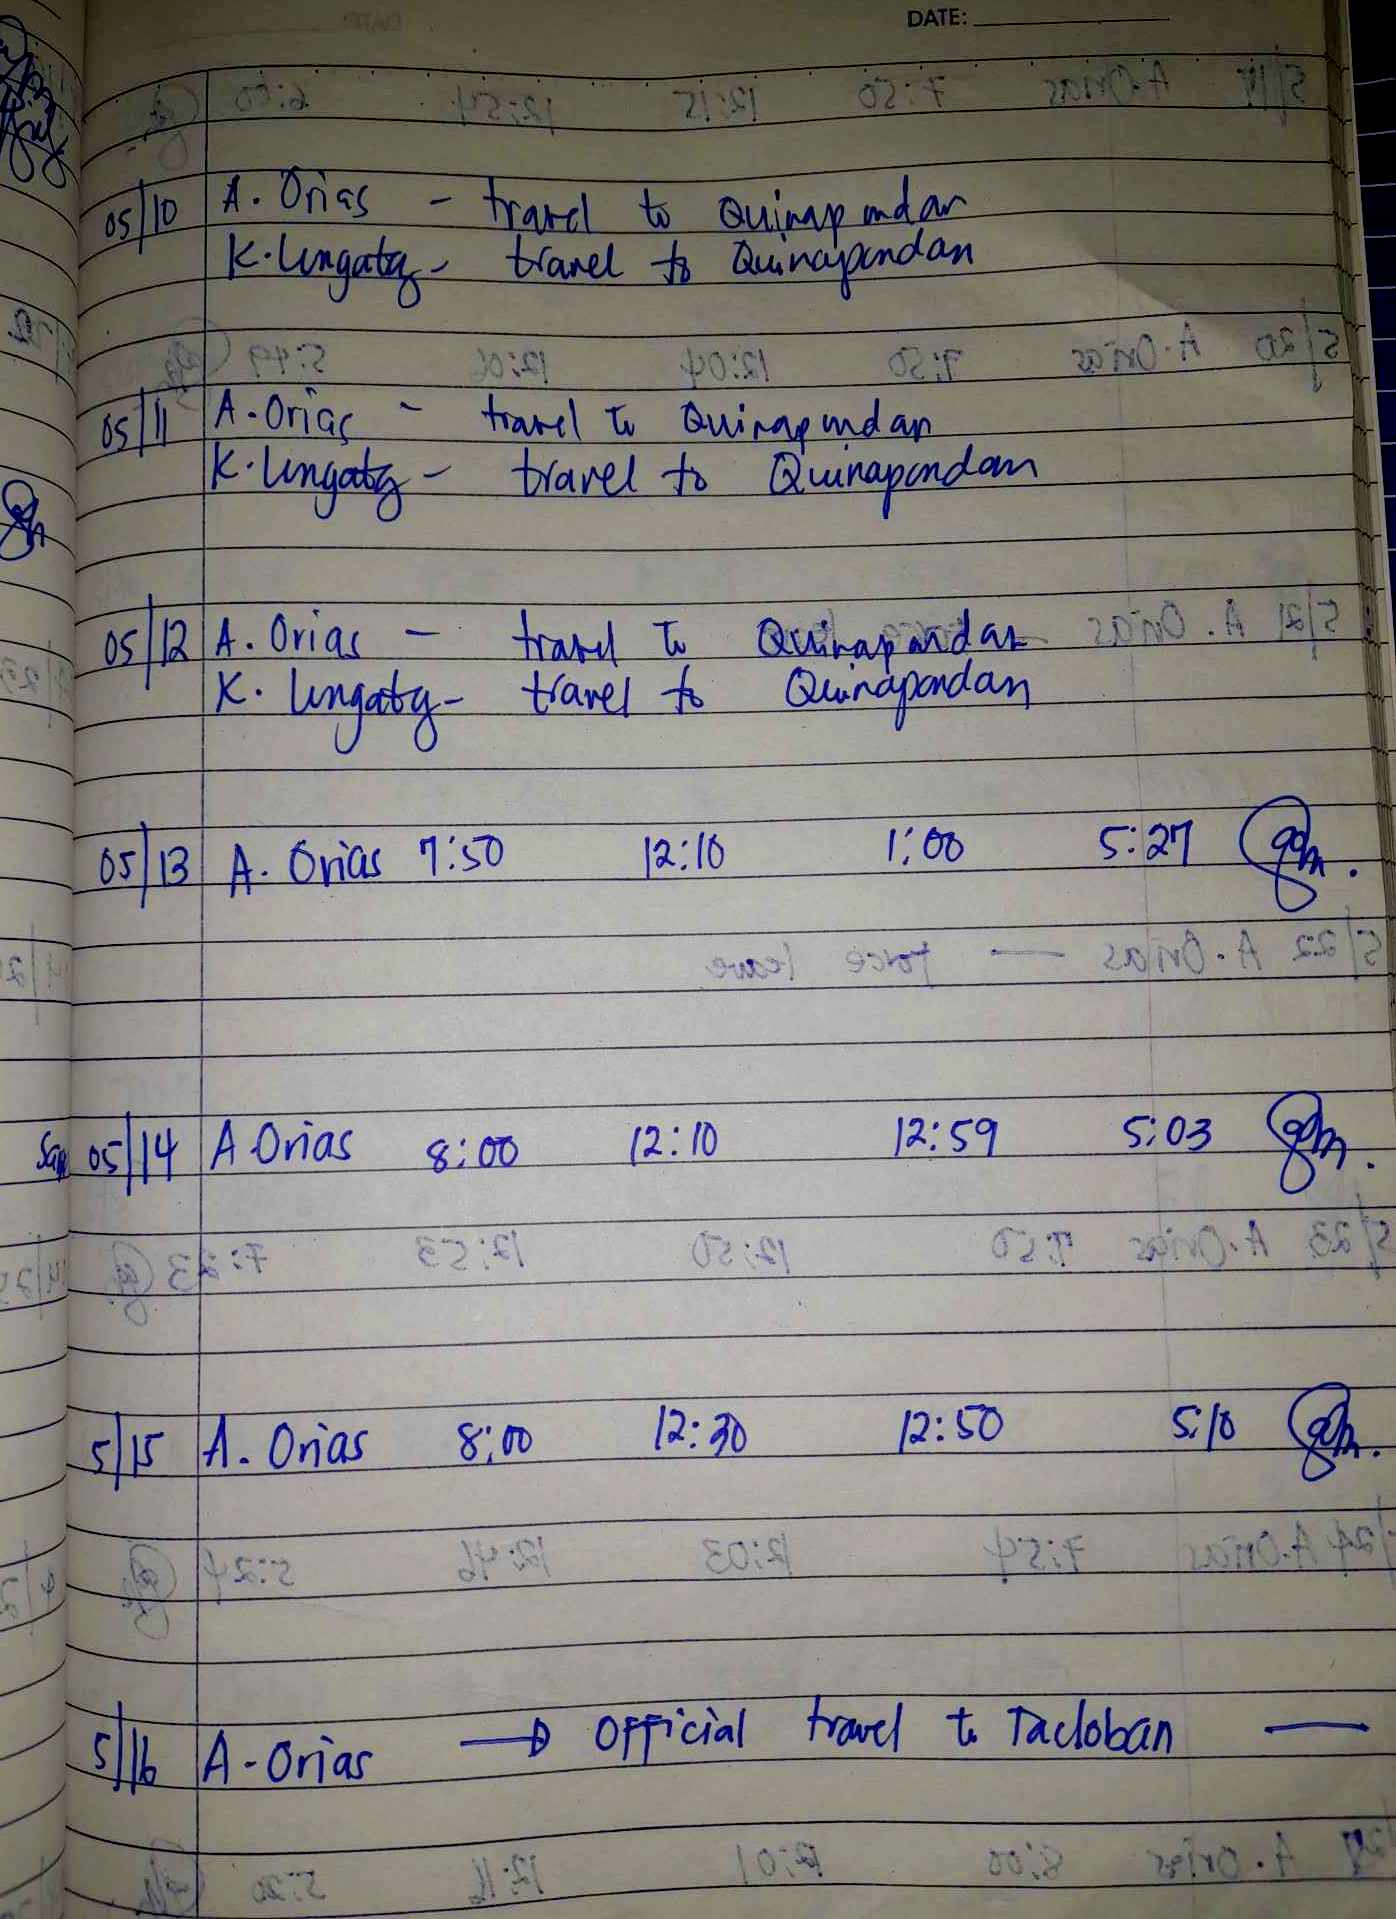 DATE:
05/10 A. Orias - travel to Quinapondan
K. Lingatog - travel to Quinapondan
05/11 A. Orias - travel to Quinapondan
K. Lingatog - travel to Quinapondan
05/12 A. Orias - travel to Quinapondan
K. Lingatog - travel to Quinapondan
05/13 A. Orias 7:50 12:10 1:00 5:27
05/14 A Orias 8:00 12:10 12:59 5:03
5/15 A. Orias 8:00 12:30 12:50 5:10
5/16 A. Orias → Official travel to Tacloban —